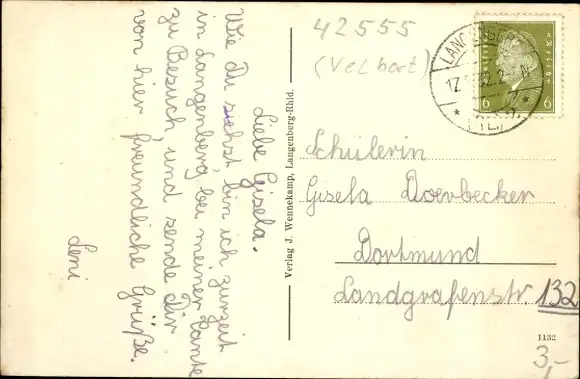 Liebe Gisela.
Wie Du siehst, bin ich zurzeit
in Langenberg bei meiner Tante
zu Besuch, und sende Dir
von hier freundliche Grüße.
Leni
Verlag J. Wennekamp, Langenberg-Rhld.
42555
(Velbert)
LANGENBERG
17. 32.2
6 6
Schülerin
Gisela Doerbecker
Dortmund
Landgrafenstr 132
1132
3,-